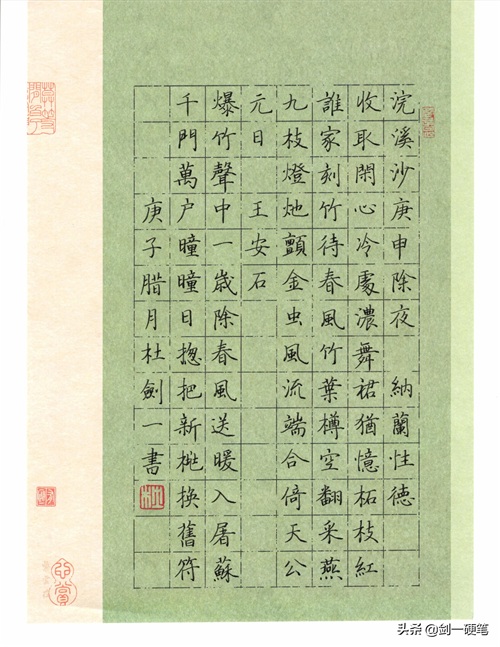 浣溪沙庚申除夜　納蘭性德
收取閑心冷處濃舞裙猶憶柘枝紅
誰家刻竹待春風竹葉樽空翻采燕
九枝燈灺顫金虫風流端合倚天公
元日　王安石
爆竹聲中一歳除春風送暖入屠蘇
千門萬户曈曈日揔把新桃换舊符
庚子腊月杜劍一書
头条 @剑一硬笔